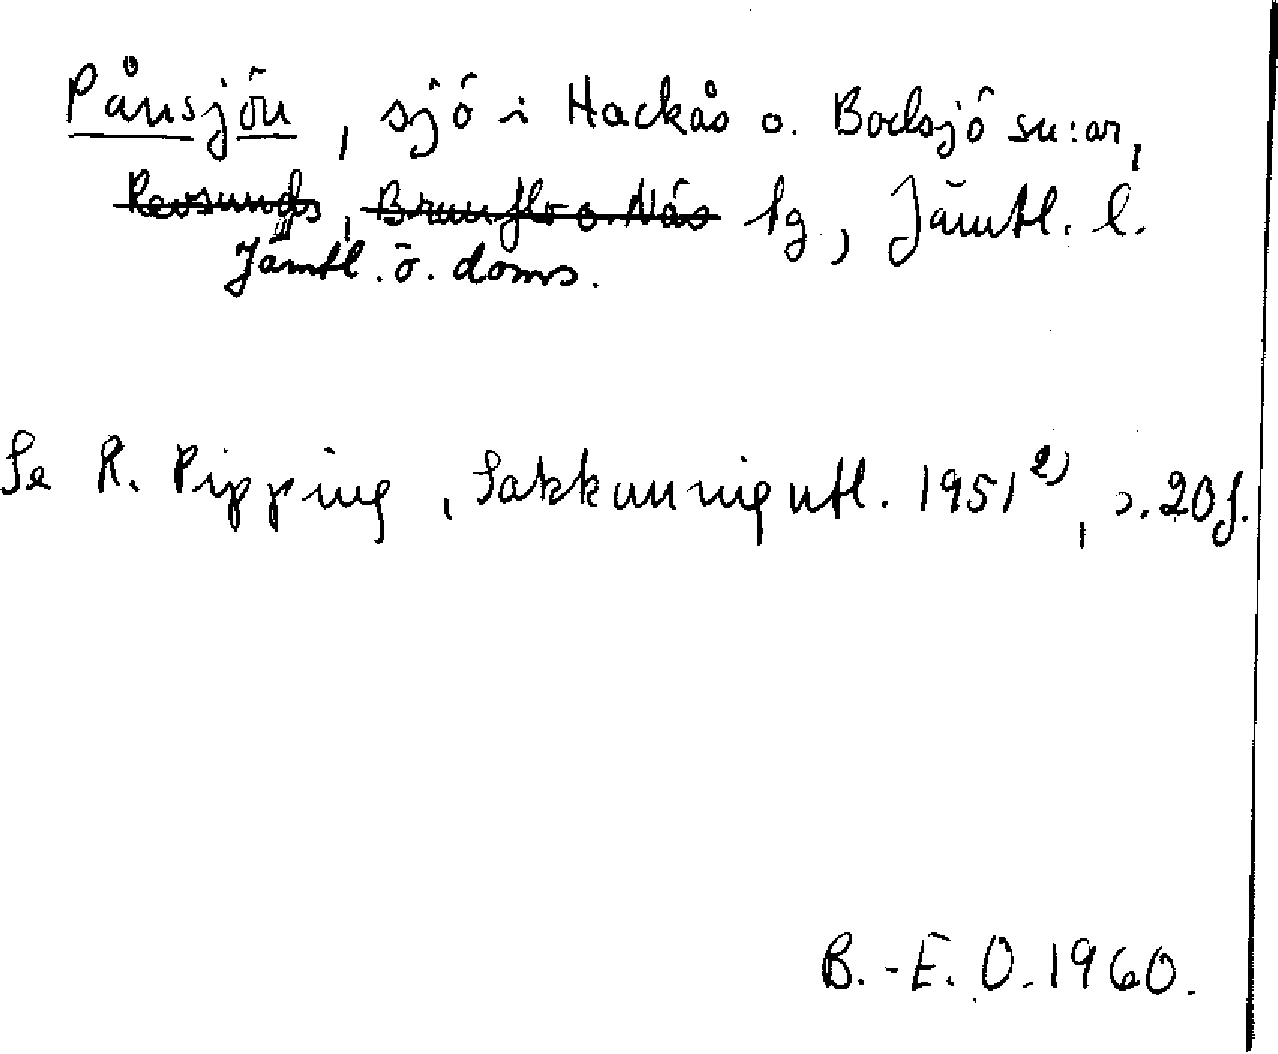 Pånsjön, sjö i Hackås o. Bodsjö sn:ar,
Revsunds, Brunflo o. Näs tg, Jämtl. l.
Jämtl. ö. doms.
Se R. Pipping, Sakkunnigutl. 1951 2), s. 20 f.
B.-E. O. 1960.